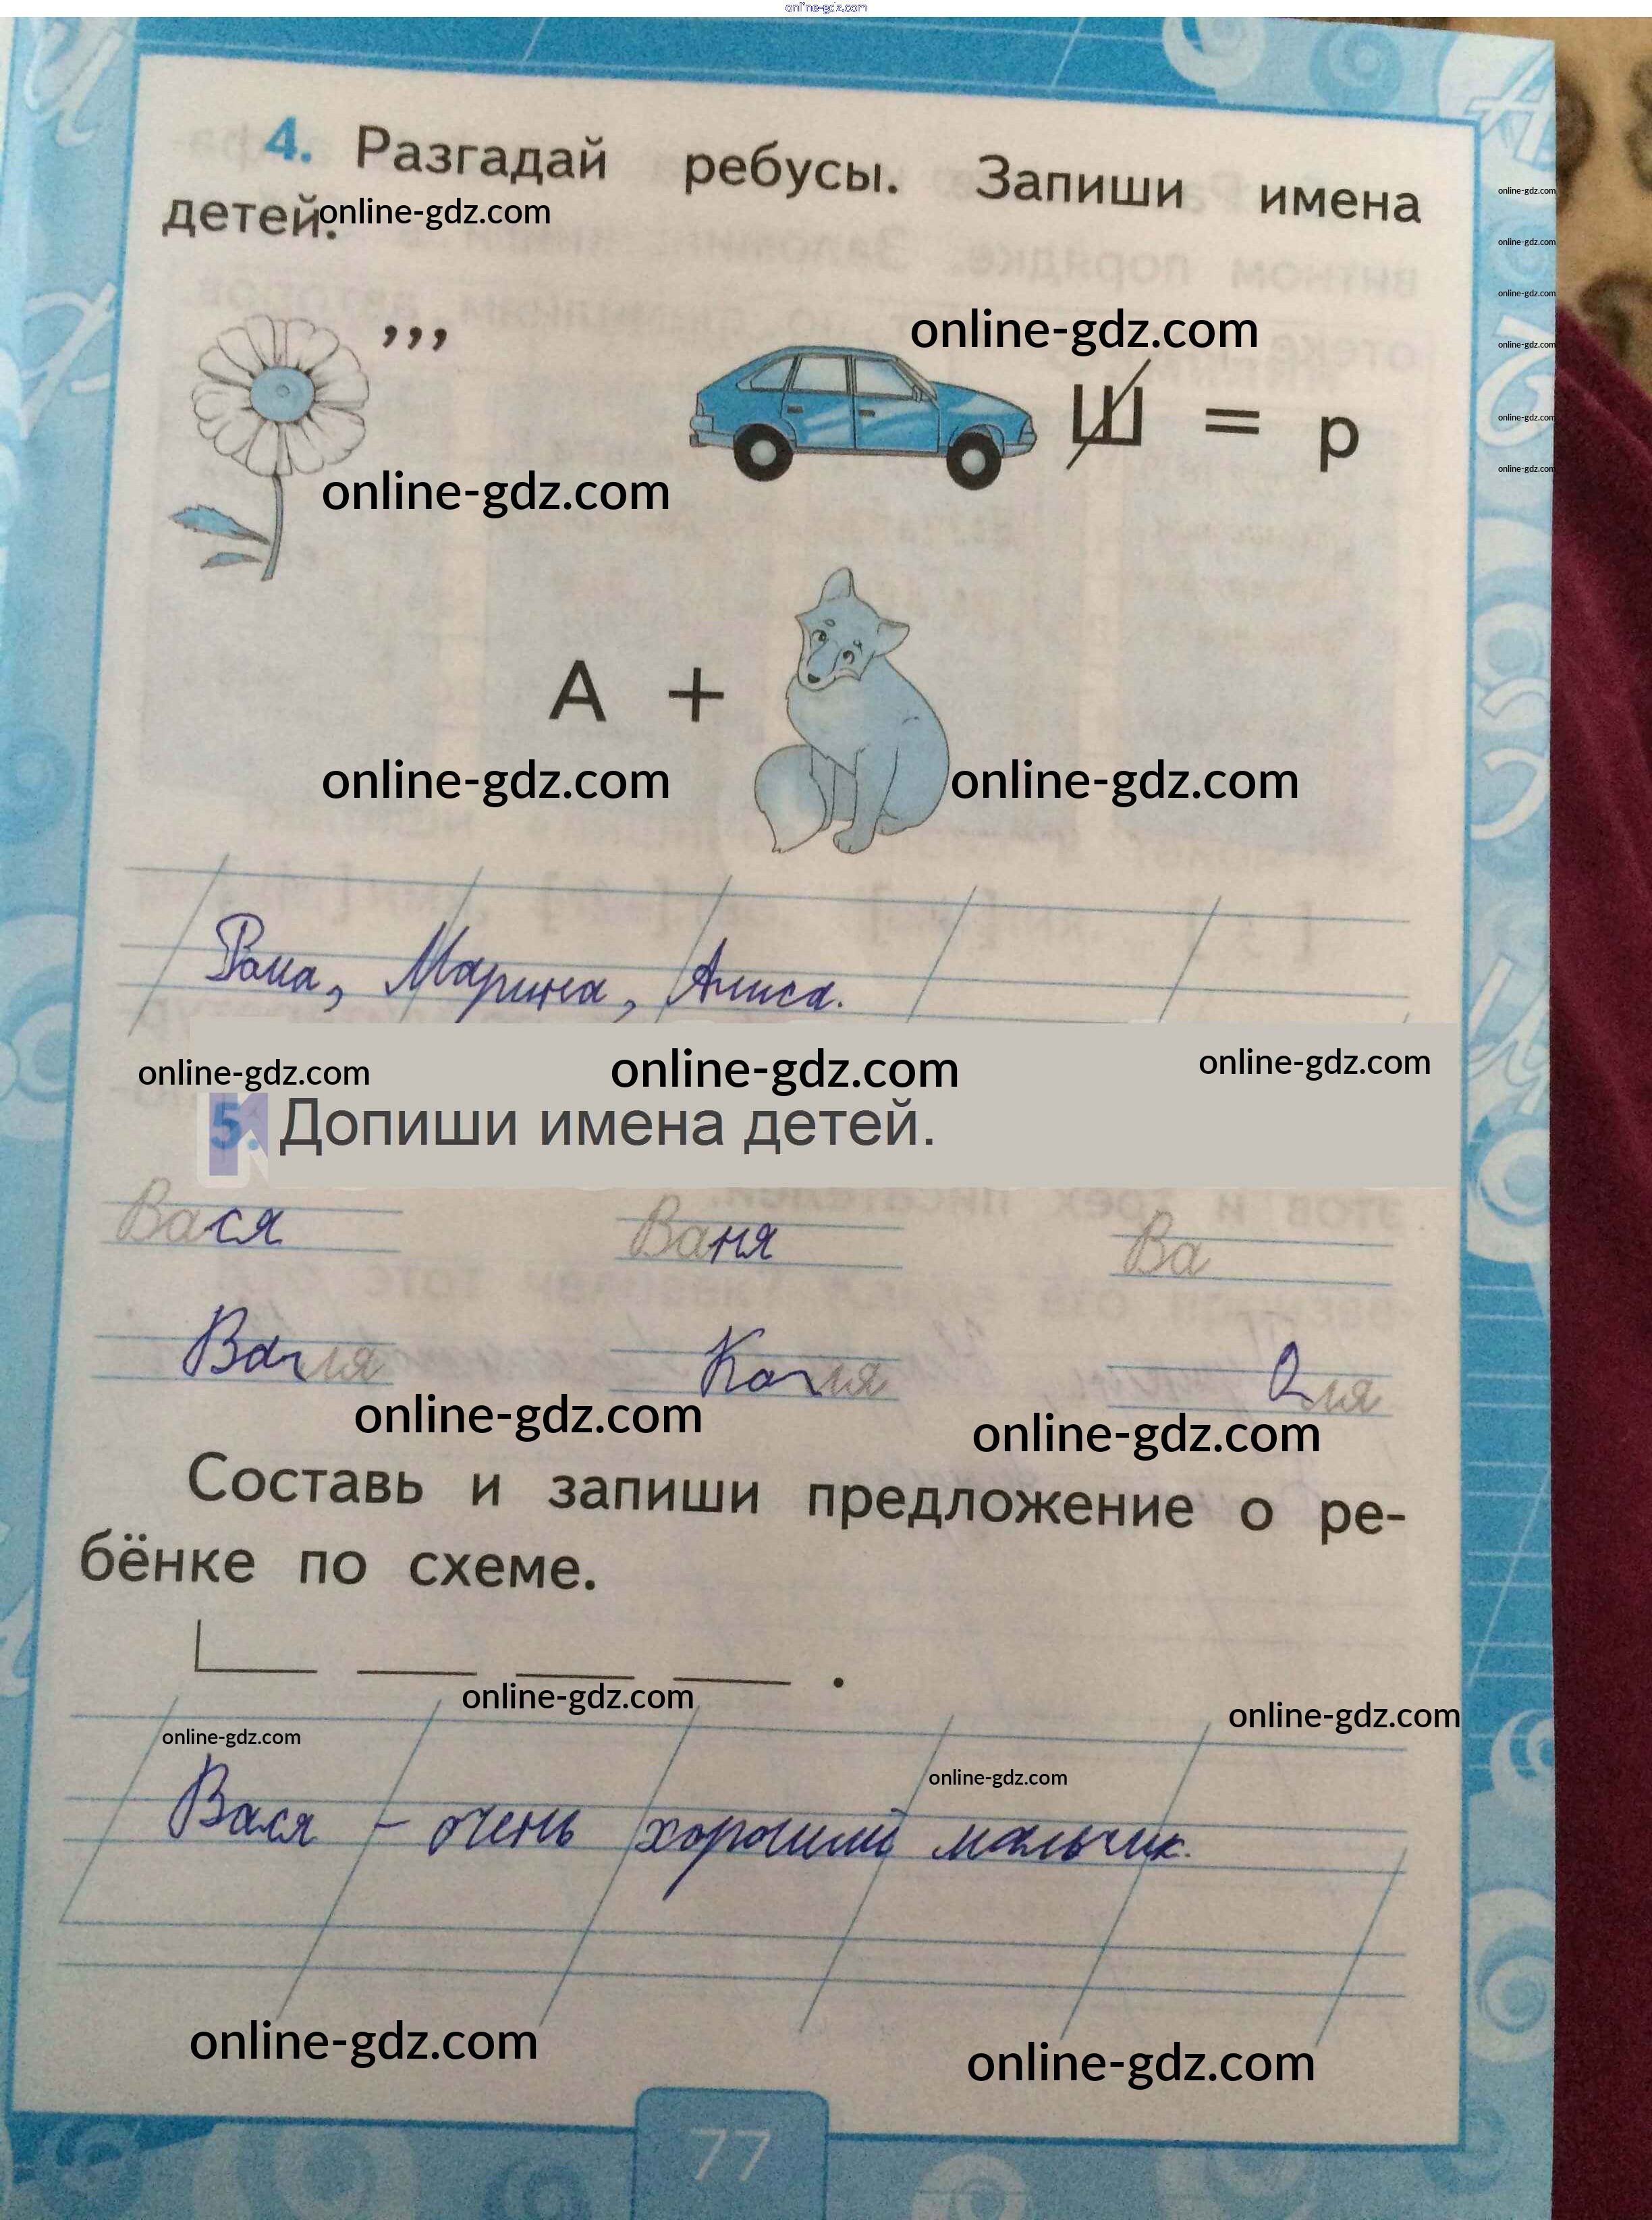 online-gdz.com
4. Разгадай ребусы. Запиши имена
детей.
online-gdz.com
online-gdz.com
online-gdz.com
online-gdz.com
online-gdz.com
online-gdz.com
online-gdz.com
,,,
online-gdz.com
Ш = р
online-gdz.com
А +
online-gdz.com
online-gdz.com
Рома, Марина, Алиса.
online-gdz.com
online-gdz.com
online-gdz.com
5. Допиши имена детей.
Вася Ваня Ва
Валя Коля Оля
online-gdz.com
online-gdz.com
Составь и запиши предложение о ре-
бёнке по схеме.
online-gdz.com
online-gdz.com
online-gdz.com
online-gdz.com
Вася - очень хороший мальчик.
online-gdz.com
online-gdz.com
77